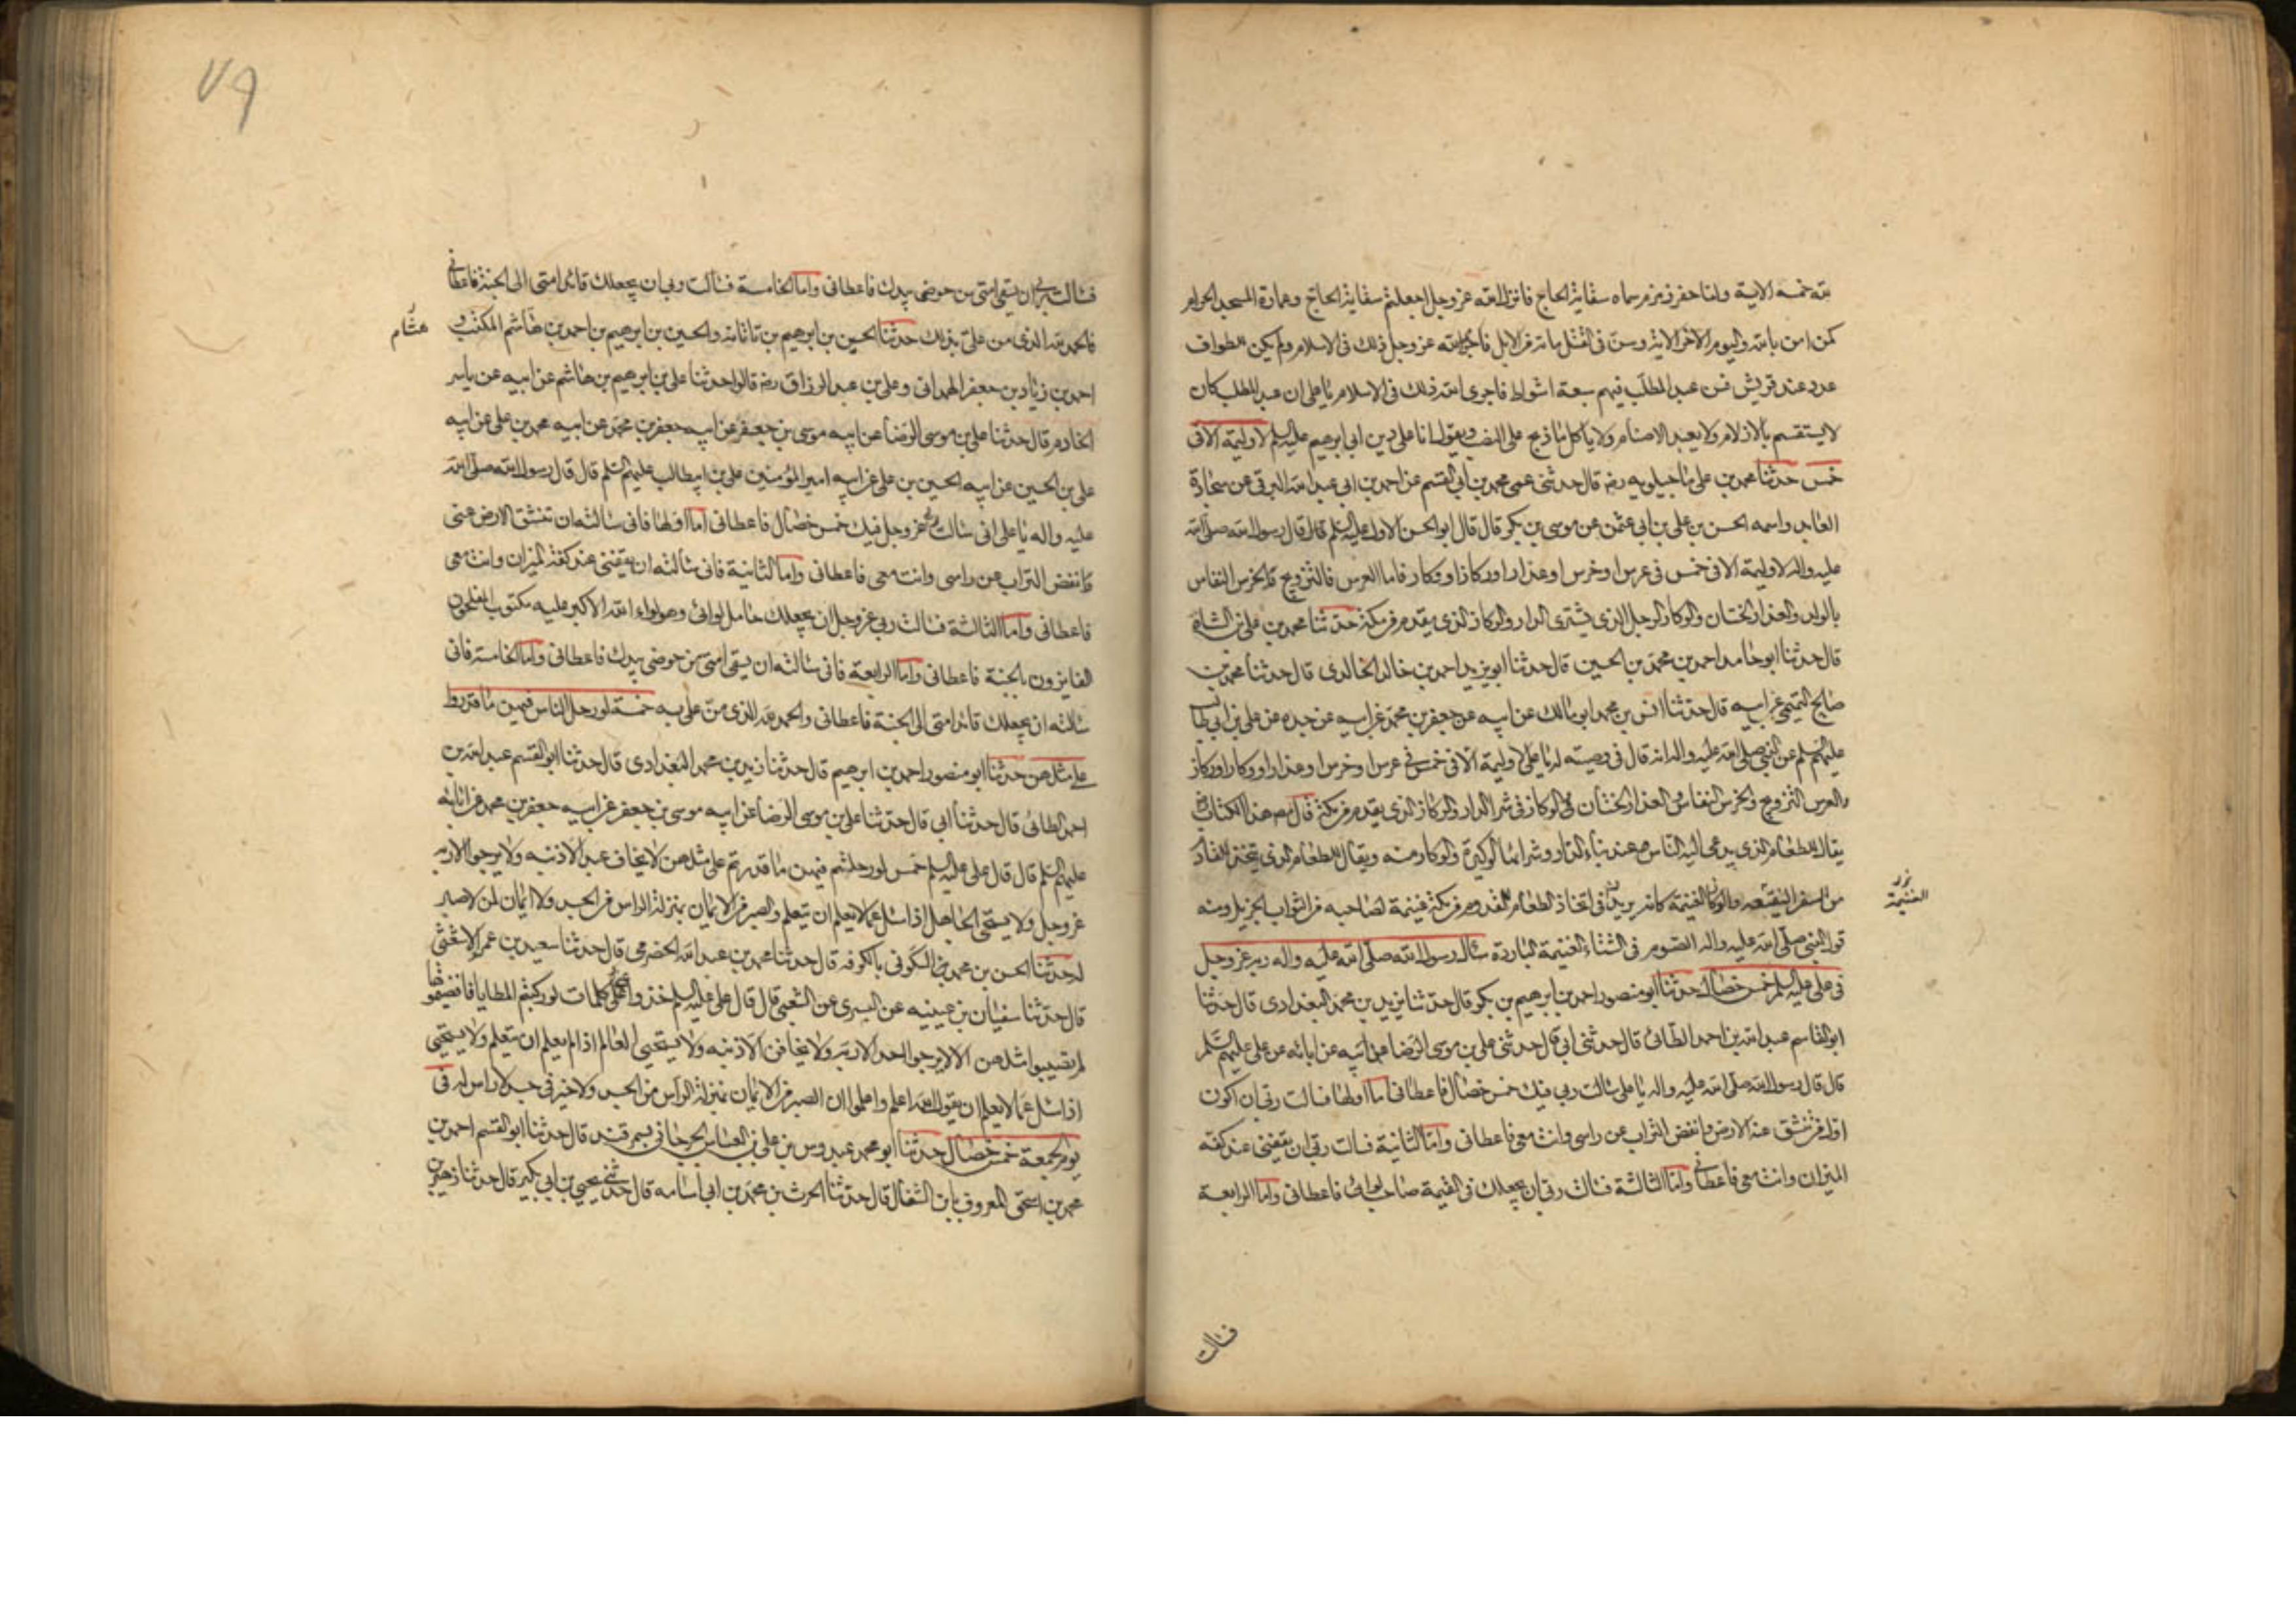 لله خمسه الآية ولما حفر زمزم سماه سقاية الحاج فانزل الله عز وجل اجعلتم سقاية الحاج وعمارة المسجد الحرام
كمن امن بالله واليوم الاخر الاية وسن في القتل مائة من الابل فاجرى الله عز وجل ذلك في الاسلام ولم يكن للطواف
عدد عند قريش فسن عبد المطلب فيهم سبعة اشواط فاجرى الله ذلك في الاسلام يا على ان عبد المطلب كان
لا يستقسم بالازلام ولا يعبد الاصنام ولا ياكل ما ذبح على النصب ويقول انا على دين ابي ابرهيم عليه السلم لا وليمة الا في
خمس حدثنا محمد بن على ماجيلويه رضه قال حدثنى عمى محمد بن ابي القسم عن احمد بن ابي عبد الله البرقى عن سجادة
العابد واسمه الحسن بن على بن ابي عثمن عن موسى بن بكر قال قال ابو الحسن الاول عليه السلم قال قال رسول الله صلى الله
عليه واله لا وليمة الا في خمس في عرس او خرس او عذار او ركاز او وكار فاما العرس فالتزويج والخرس النفاس
بالولد والعذار الختان والوكار الرجل الذى يشترى الدار والركاز الذى يقدم من مكة حدثنا محمد بن على بن الشاه
قال حدثنا ابو حامد احمد بن محمد بن الحسين قال حدثنا ابو يزيد احمد بن خالد الخالدى قال حدثنا محمد بن
صالح التميمى عن ابيه قال حدثنا انس بن محمد ابو مالك عن ابيه عن جعفر بن محمد عن ابيه عن جده عن على بن ابي طالب
عليهم السلم عن النبي صلى الله عليه واله انه قال في وصيته له يا على لا وليمة الا في خمس في عرس او خرس او عذار او وكار او ركاز
والعرس التزويج والخرس النفاس والعذار الختان والوكار في شراء الدار والركاز الذى يقدم من مكة قال مصنف هذا الكتاب
يقال للطعام الذى يدعى اليه الناس عند بناء الدار وشرائها الوكيرة والوكار منه ويقال للطعام الذى يتخذ للقادم
من السفر النقيعه والركاز الغنيمة كانه يريد ان في اتخاذ الطعام للقدوم من مكة غنيمة لصاحبه من الثواب الجزيل ومنه
قول النبي صلى الله عليه واله الصوم في الشتاء الغنيمة الباردة سأل رسول الله صلى الله عليه واله ربه عز وجل
في على عليه السلم خمس خصال حدثنا ابو منصور احمد بن ابرهيم بن بكر قال حدثنا زيد بن محمد البغدادى قال حدثنا
ابو القاسم عبد الله بن احمد الطائى قال حدثنى ابي قال حدثنى على بن موسى الرضا عن ابيه عن ابائه عن على عليهم السلم
قال قال رسول الله صلى الله عليه واله يا على سالت ربي فيك خمس خصال فاعطانى اما اولها فسالت ربي ان اكون
اول من تنشق عنه الارض وانفض التراب عن راسى وانت معى فاعطانى واما الثانية فسالت ربي ان يقفنى عند كفه
الميزان وانت معى فاعطانى واما الثالثة فسالت ربي ان يجعلك في القيمة صاحب لوائى فاعطانى واما الرابعة
الغنيمة
فسالت
٧٩
فسالت ربي ان يسقى امتى من حوضى بيدك فاعطانى واما الخامسة فسالت ربي ان يجعلك قائد امتى الى الجنة فاعطانى
فالحمد لله الذى من على بذلك حدثنا الحسين بن ابرهيم بن ناتانه والحسين بن ابرهيم بن احمد بن هاشم المكتب و
هشام
احمد بن زياد بن جعفر الهمدانى وعلى بن عبد الله الوراق رضه قالوا حدثنا على بن ابرهيم بن هاشم عن ابيه عن ياسر
الخادم قال حدثنا على بن موسى الرضا عن ابيه موسى بن جعفر عن ابيه جعفر بن محمد عن ابيه محمد بن على عن ابيه
على بن الحسين عن ابيه الحسين بن على عن ابيه امير المؤمنين على بن ابيطالب عليهم السلم قال قال رسول الله صلى الله
عليه واله يا على انى سالت ربي عز وجل فيك خمس خصال فاعطانى اما اولها فانى سالته ان تنشق الارض عنى
وانفض التراب عن راسى وانت معى فاعطانى واما الثانية فانى سألته ان يقفنى عند كفة الميزان وانت معى
فاعطانى واما الثالثة فسالت ربي عز وجل ان يجعلك حامل لوائى وهو لواء الله الاكبر عليه مكتوب المفلحون
الفايزون بالجنة فاعطانى واما الرابعة فانى سالته ان يسقى امتى من حوضى بيدك فاعطانى واما الخامسة فانى
سالته ان يجعلك قائد امتى الى الجنة فاعطانى والحمد لله الذى من على به خمسة لو رحل الناس فيهن ما قدروا
على مثلهن حدثنا ابو منصور احمد بن ابرهيم قال حدثنا زيد بن محمد البغدادى قال حدثنا ابو القسم عبد الله بن
احمد الطائى قال حدثنا ابي قال حدثنا على بن موسى الرضا عن ابيه موسى بن جعفر عن ابيه جعفر بن محمد عن ابائه
عليهم السلم قال قال على عليه السلم خمس لو رحلتم فيهن ما قدرتم على مثلهن لا يخاف عبد الا ذنبه ولا يرجو الا ربه
عز وجل ولا يستحى الجاهل اذا سئل عما لا يعلم ان يتعلم والصبر من الايمان بمنزلة الراس من الجسد ولا ايمان لمن لا صبر
له حدثنا الحسن بن محمد السكونى بالكوفه قال حدثنا محمد بن عبد الله الحضرمى قال حدثنا سعيد بن عمرو الاشعثى
قال حدثنا سفيان بن عيينه عن السرى عن الشعبي قال قال على عليه السلم خذوا عنى كلمات لو ركبتم المطايا فانضيتموها
لم تصيبوا مثلهن الا لا يرجو احد الا ربه ولا يخافن الا ذنبه ولا يستحيى العالم اذا لم يعلم ان يتعلم ولا يستحيى
اذا سئل عما لا يعلم ان يقول الله اعلم واعلموا ان الصبر من الايمان بمنزلة الرأس من الجسد ولا خير في جسد لا راس له في
يوم الجمعة خمس خصال حدثنا ابو محمد عبدوس بن على بن العباس الجرجانى بسمرقند قال حدثنا ابو القسم احمد بن
محمد بن اسحق المعروف بابن الشغال قال حدثنا الحرث بن محمد بن ابي اسامه قال حدثنى يحيى بن ابي بكير قال حدثنا زهير بن